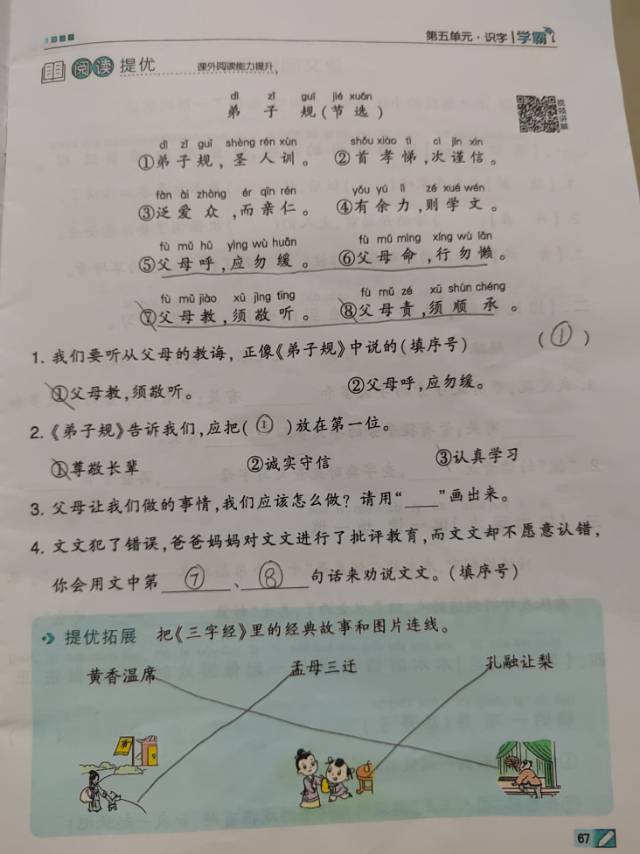 第五单元·识字 学霸
阅读 提优 课外阅读能力提升
dì zǐ guī jié xuǎn
弟子规(节选)
dì zǐ guī shèng rén xùn shǒu xiào tì cì jǐn xìn
①弟子规,圣人训。 ②首孝悌,次谨信。
fàn ài zhòng ér qīn rén yǒu yú lì zé xué wén
③泛爱众,而亲仁。 ④有余力,则学文。
fù mǔ hū yìng wù huǎn fù mǔ mìng xíng wù lǎn
⑤父母呼,应勿缓。 ⑥父母命,行勿懒。
fù mǔ jiào xū jìng tīng fù mǔ zé xū shùn chéng
⑦父母教,须敬听。 ⑧父母责,须顺承。
1. 我们要听从父母的教诲,正像《弟子规》中说的(填序号) (①)
①父母教,须敬听。 ②父母呼,应勿缓。
2.《弟子规》告诉我们,应把(①)放在第一位。
①尊敬长辈 ②诚实守信 ③认真学习
3. 父母让我们做的事情,我们应该怎么做?请用“____”画出来。
4. 文文犯了错误,爸爸妈妈对文文进行了批评教育,而文文却不愿意认错,
你会用文中第⑦、⑧句话来劝说文文。(填序号)
提优拓展 把《三字经》里的经典故事和图片连线。
黄香温席 孟母三迁 孔融让梨
67